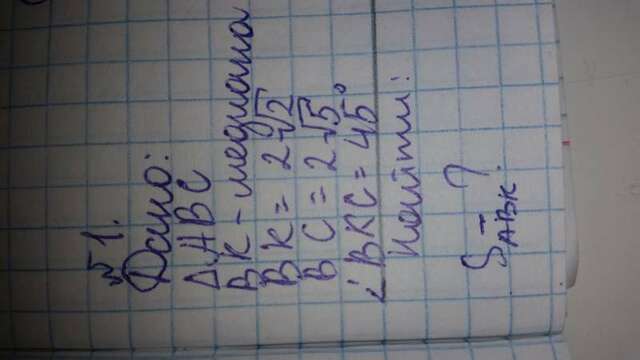 №1.
Дано:
Δ ABC
BK - медиана
BK = 2√2
BC = 2√5
∠BKC = 45°
Найти:
S ABK - ?